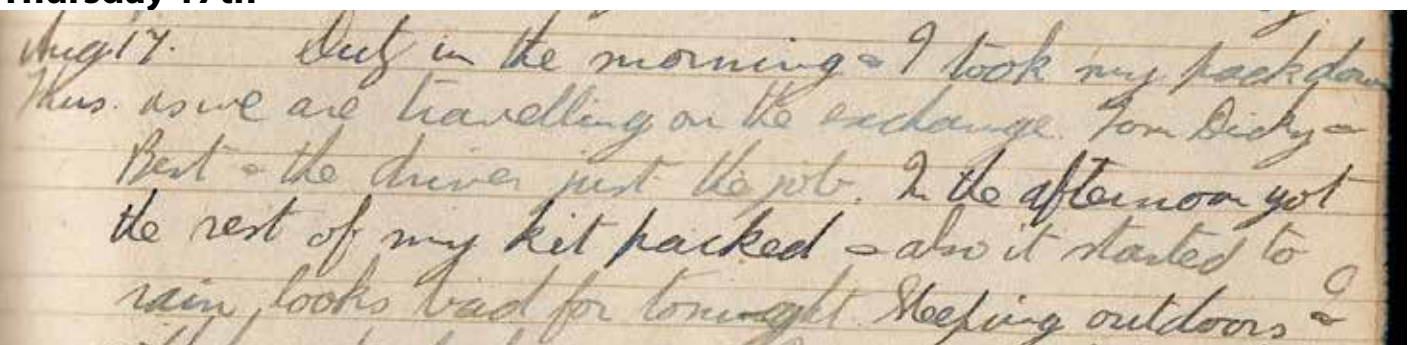 Thursday 17th
Aug 17. Duty in the morning - I took my pack down
Thus. as we are travelling on the exchange. Tom Dicky -
Bert - the driver just the job. In the afternoon got
the rest of my kit packed - also it started to
rain, looks bad for tonight. Sleeping outdoors -